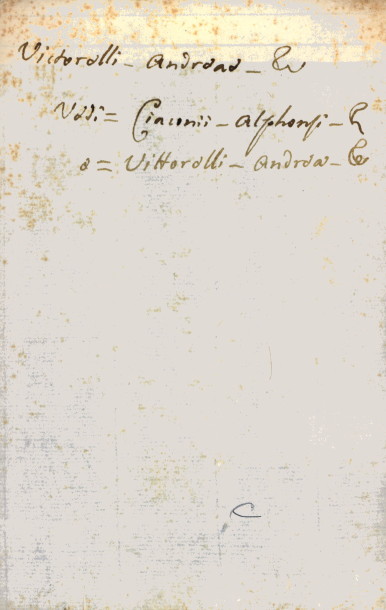 Victorelli - Andreas - &c
Vedi = Ciaconii - Alphonsi - &
e = Vittorelli - Andrea - &c
C